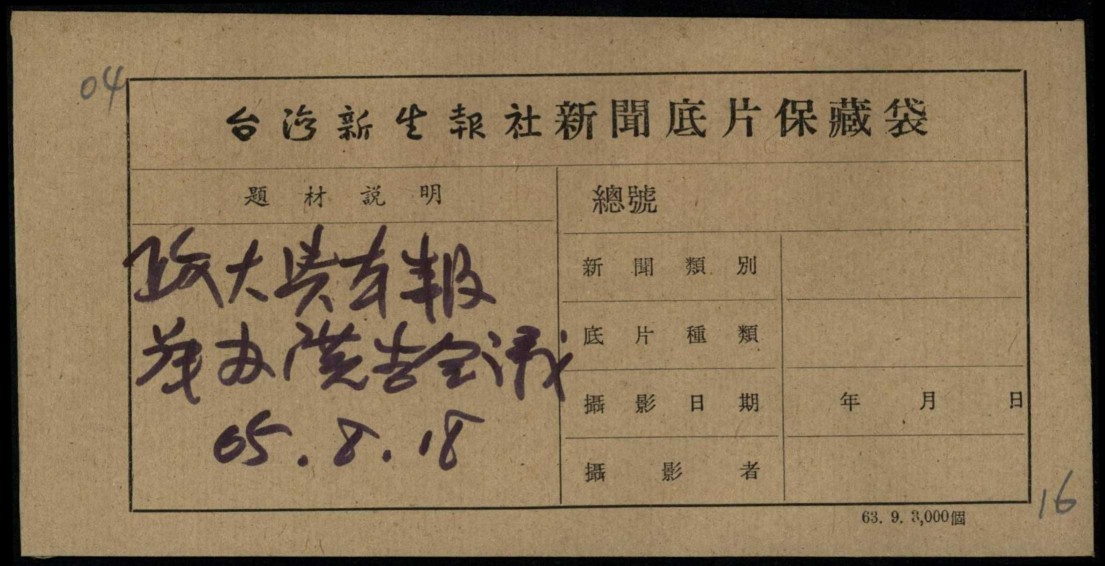 04
台湾新生報社新聞底片保藏袋
題材說明
政大與本報
舉办廣告会議
65.8.18
總號
新聞類別
底片種類
攝影日期 年 月 日
攝影者
63. 9. 3,000個
16